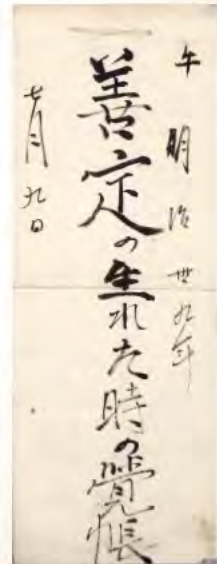 午 明治卅九年
善定の生れた時の覚帳
七月九日